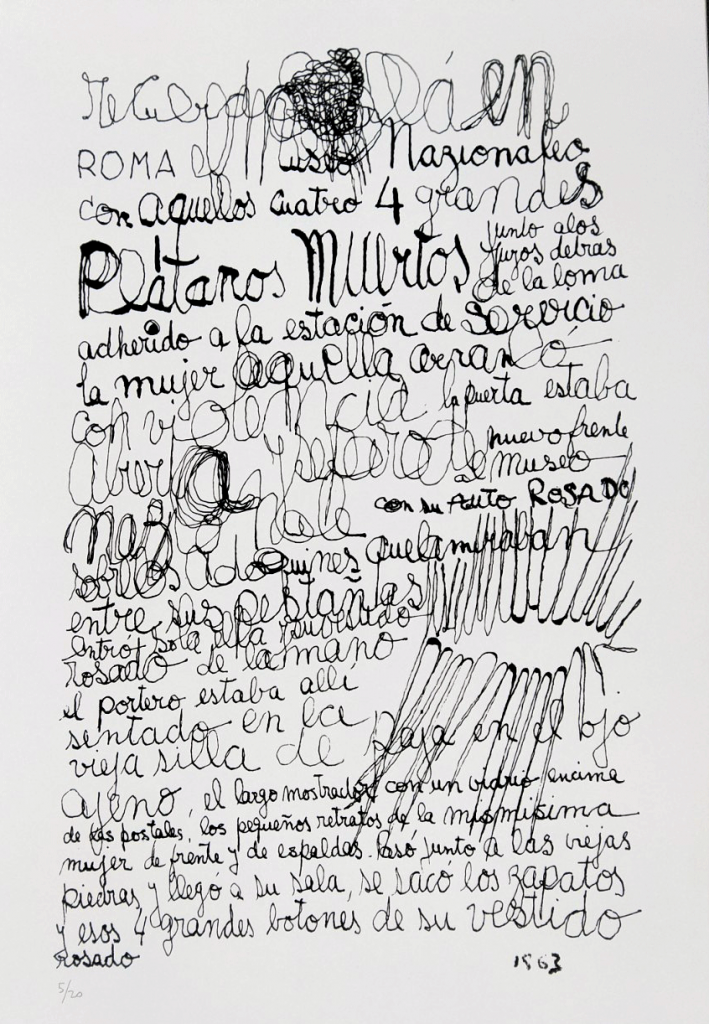 Recuerdo allá en
ROMA el Museo Nazionaleo
con aquellos cuatro 4 grandes
Plátanos Muertos junto a los
yuyos detras
de la loma
adherido a la estación de servicio
la mujer aquella arrancó
con violencia la puerta estaba
abierta nuevo frente
al museo
con su Auto ROSADO
sobre los adoquines que la miraban
entre sus pestañas
entró sola ella su vestido
rosado de la mano
el portero estaba alli
sentado en la
vieja silla de paja en el ojo
ajeno, el largo mostrador con un vidrio encima
de las postales, los pequeños retratos de la mismisima
mujer de frente y de espaldas. Pasó junto a las viejas
piedras y llegó a su sala, se sacó los zapatos
y esos 4 grandes botones de su vestido
rosado 1963
5/20